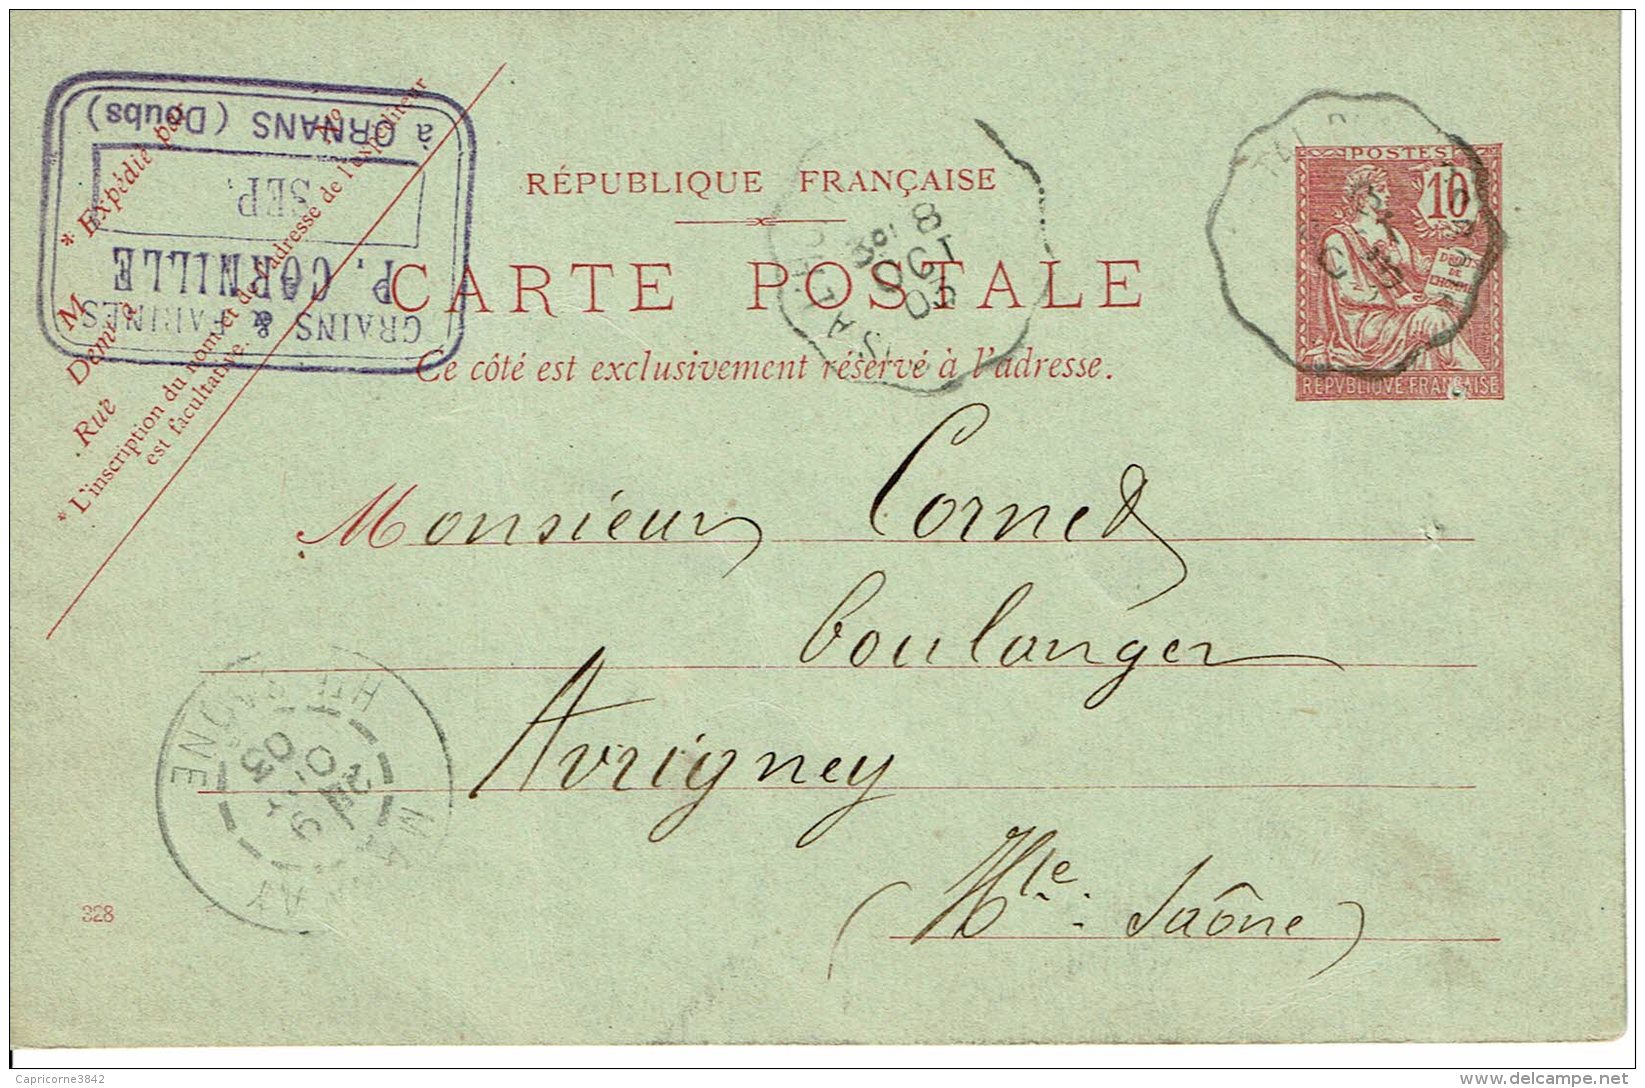 * Expédié par
M
Demt à
Rue No
* L'inscription du nom et de l'adresse de l'expéditeur
est facultative.
GRAINS & FARINES
P. CORNILLE
SEP.
à ORNANS (Doubs)
RÉPUBLIQUE FRANÇAISE
CARTE POSTALE
Ce côté est exclusivement réservé à l'adresse.
8
OCT
03
POSTES
10
DROITS
DE
L'HOMME
REPVBLIQVE FRANÇAISE
Monsieur Cornet
boulanger
Avrigney
(Hte: Saône)
HTE SAONE
9
03
328
Capricorne3842
delcampe.net